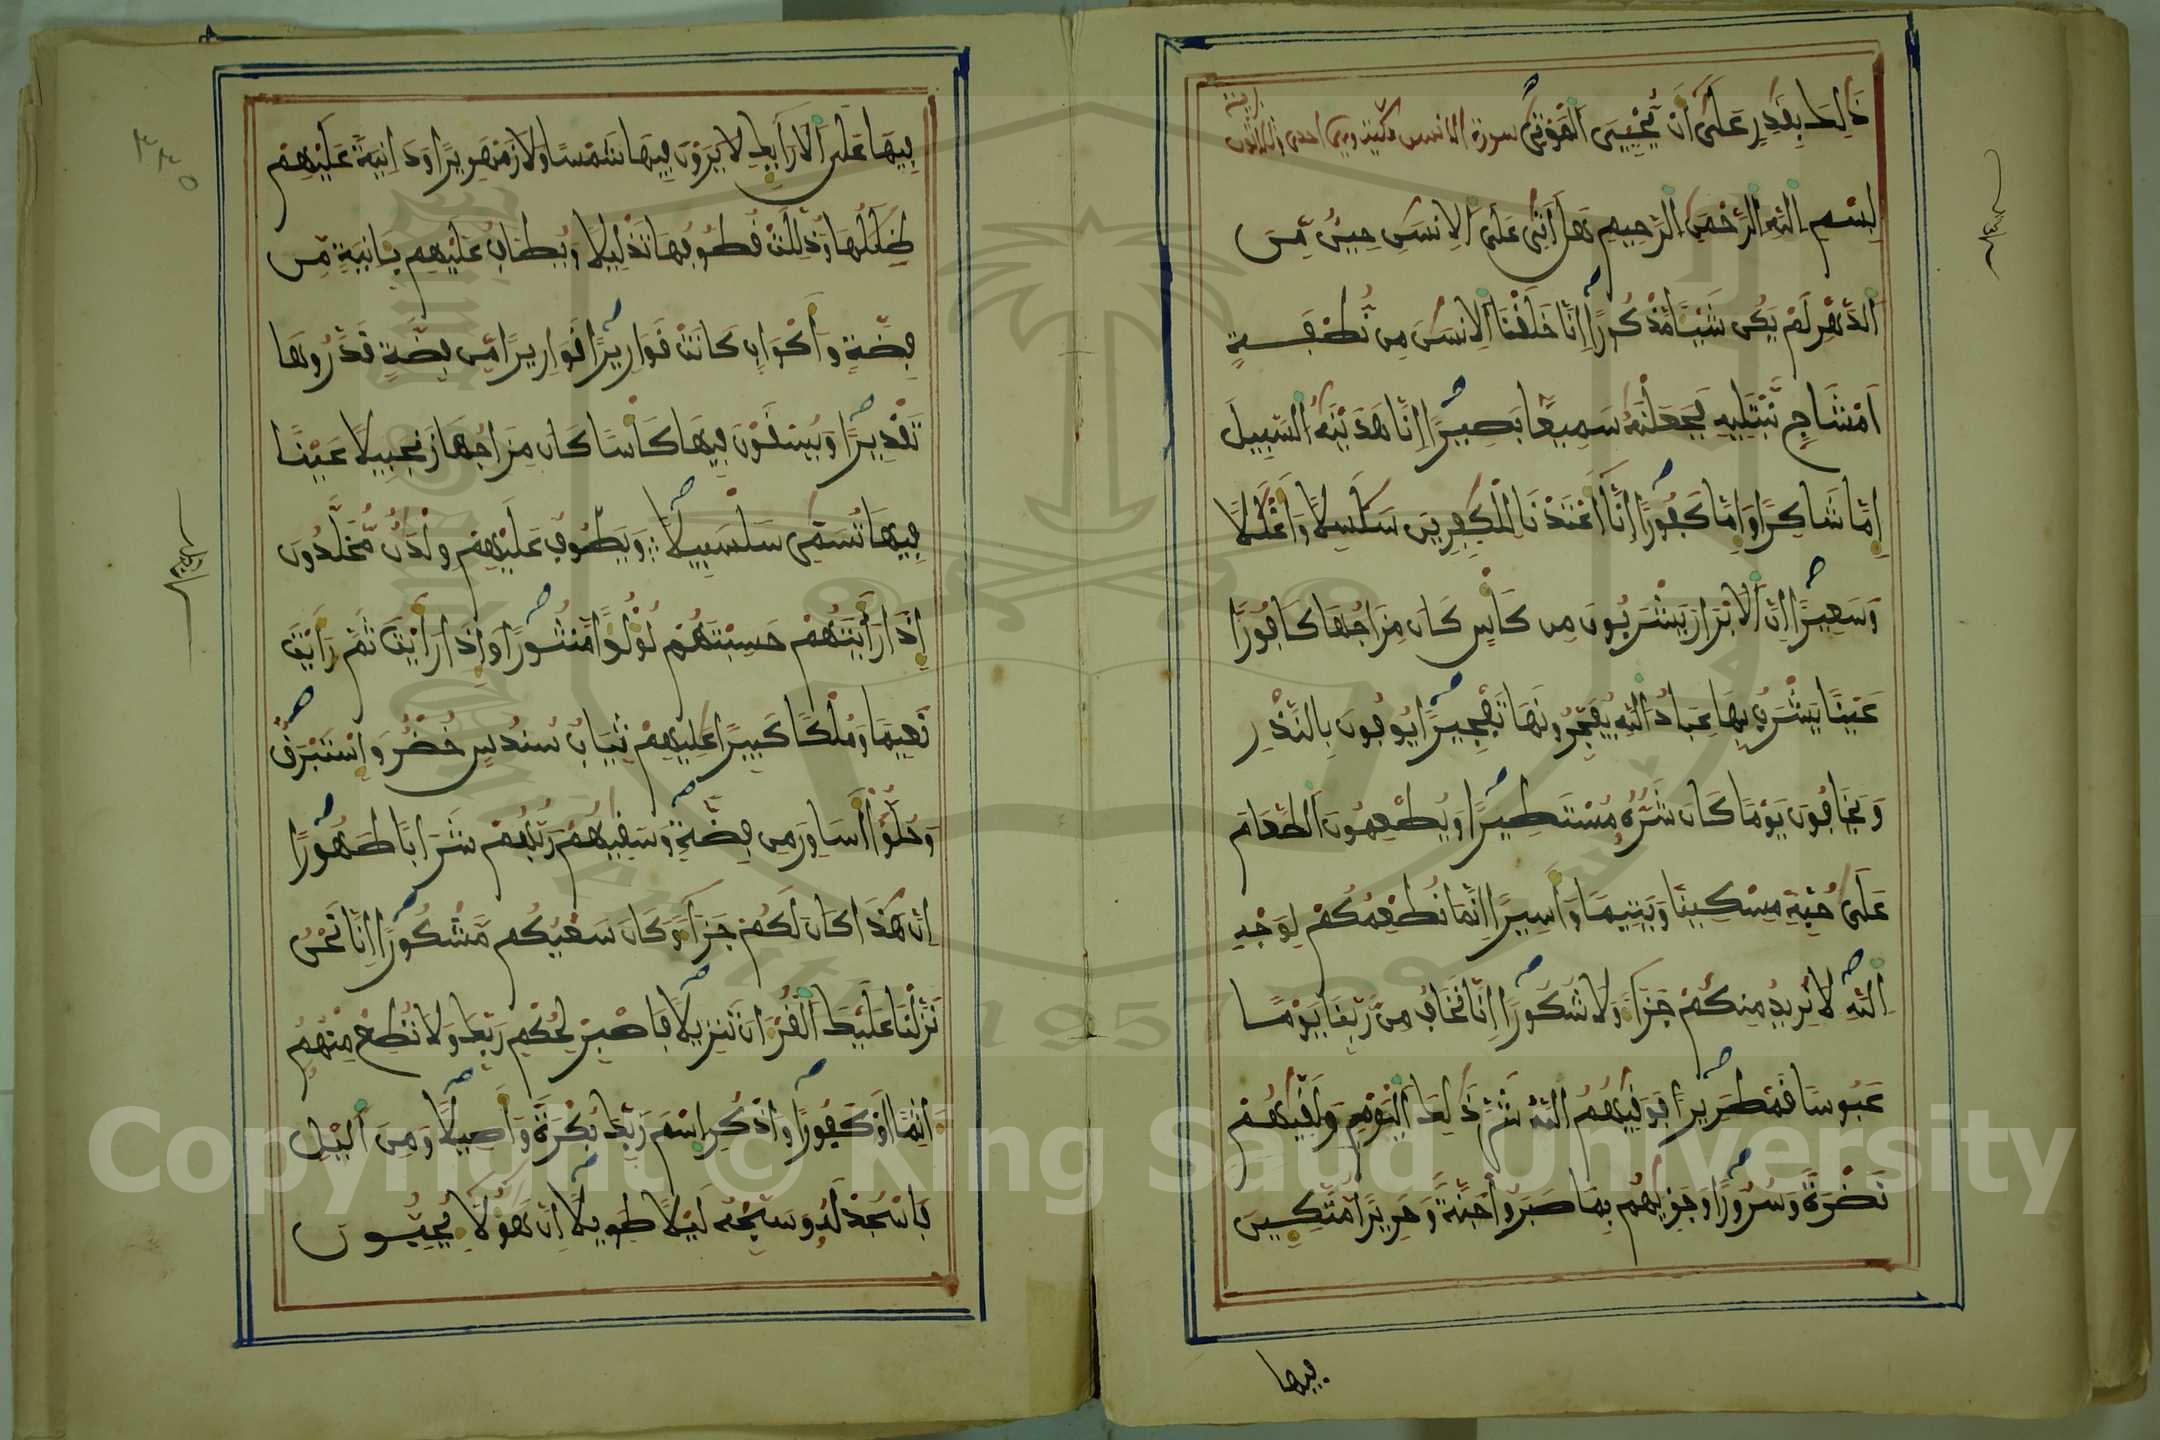 ذَٰلِكَ بِقَٰدِرٍ عَلَىٰ أَنْ يُّحْۦِيَ اَلْمَوْتَىٰ سورة الانسن مكية وهي احدى وثلاثون اية
بِسْمِ اِللَّهِ اِلرَّحْمَٰنِ اِلرَّحِيمِ هَلَ اَتَىٰ عَلَى اَلِانسَٰنِ حِينٌ مِّنَ
اَلدَّهْرِ لَمْ يَكُن شَيْـًٔا مَّذْكُورًا اِنَّا خَلَقْنَا اَلِانسَٰنَ مِن نُّطْفَةٍ
اَمْشَاجٍ نَّبْتَلِيهِ فَجَعَلْنَٰهُ سَمِيعًا بَصِيرًا اِنَّا هَدَيْنَٰهُ اُلسَّبِيلَ
إِمَّا شَاكِرًا وَإِمَّا كَفُورًا اِنَّا أَعْتَدْنَا لِلْكَٰفِرِينَ سَلَٰسِلًا وَأَغْلَٰلًا
وَسَعِيرًا اِنَّ اَلَابْرَارَ يَشْرَبُونَ مِن كَأْسٍ كَانَ مِزَاجُهَا كَافُورًا
عَيْنًا يَشْرَبُ بِهَا عِبَادُ اُللَّهِ يُفَجِّرُونَهَا تَفْجِيرًا يُوفُونَ بِالنَّذْرِ
وَيَخَافُونَ يَوْمًا كَانَ شَرُّهُ مُسْتَطِيرًا وَيُطْعِمُونَ اَلطَّعَامَ
عَلَىٰ حُبِّهِ مِسْكِينًا وَيَتِيمًا وَأَسِيرًا اِنَّمَا نُطْعِمُكُمْ لِوَجْهِ
اِللَّهِ لَا نُرِيدُ مِنكُمْ جَزَآءً وَلَا شُكُورًا اِنَّا نَخَافُ مِن رَّبِّنَا يَوْمًا
عَبُوسًا قَمْطَرِيرًا فَوَقَيٰهُمُ اُللَّهُ شَرَّ ذَٰلِكَ اَلْيَوْمِ وَلَقَّيٰهُمْ
نَضْرَةً وَسُرُورًا وَجَزَيٰهُم بِمَا صَبَرُواْ جَنَّةً وَحَرِيرًا مُتَّكِـِٕينَ
فيها
فِيهَا عَلَى اَلَارَآئِكِ لَا يَرَوْنَ فِيهَا شَمْسًا وَلَا زَمْهَرِيرًا وَدَانِيَةً عَلَيْهِمْ
ظِلَٰلُهَا وَذُلِّلَتْ قُطُوفُهَا تَذْلِيلًا وَيُطَافُ عَلَيْهِم بِـَٔانِيَةٍ مِّن
فِضَّةٍ وَأَكْوَابٍ كَانَتْ قَوَارِيرًا قَوَارِيرًا مِّن فِضَّةٍ قَدَّرُوهَا
تَقْدِيرًا وَيُسْقَوْنَ فِيهَا كَأْسًا كَانَ مِزَاجُهَا زَنجَبِيلًا عَيْنًا
فِيهَا تُسَمَّىٰ سَلْسَبِيلًا وَيَطُوفُ عَلَيْهِمْ وِلْدَٰنٌ مُّخَلَّدُونَ
إِذَا رَأَيْتَهُمْ حَسِبْتَهُمْ لُؤْلُؤًا مَّنثُورًا وَإِذَا رَأَيْتَ ثَمَّ رَأَيْتَ
نَعِيمًا وَمُلْكًا كَبِيرًا عَٰلِيهِمْ ثِيَابُ سُندُسٍ خُضْرٌ وَإِسْتَبْرَقٌ
وَحُلُّوٓاْ أَسَاوِرَ مِن فِضَّةٍ وَسَقَيٰهُمْ رَبُّهُمْ شَرَابًا طَهُورًا
اِنَّ هَٰذَا كَانَ لَكُمْ جَزَآءً وَكَانَ سَعْيُكُم مَّشْكُورًا اِنَّا نَحْنُ
نَزَّلْنَا عَلَيْكَ اَلْقُرْءَانَ تَنزِيلًا فَاصْبِرْ لِحُكْمِ رَبِّكَ وَلَا تُطِعْ مِنْهُمُ
ءَاثِمًا اَوْ كَفُورًا وَاذْكُرِ اِسْمَ رَبِّكَ بُكْرَةً وَأَصِيلًا وَمِنَ اَلَّيْلِ
فَاسْجُدْ لَهُ وَسَبِّحْهُ لَيْلًا طَوِيلًا اِنَّ هَٰٓؤُلَآءِ يُحِبُّونَ
٣٣٥
Copyright © King Saud University
1957